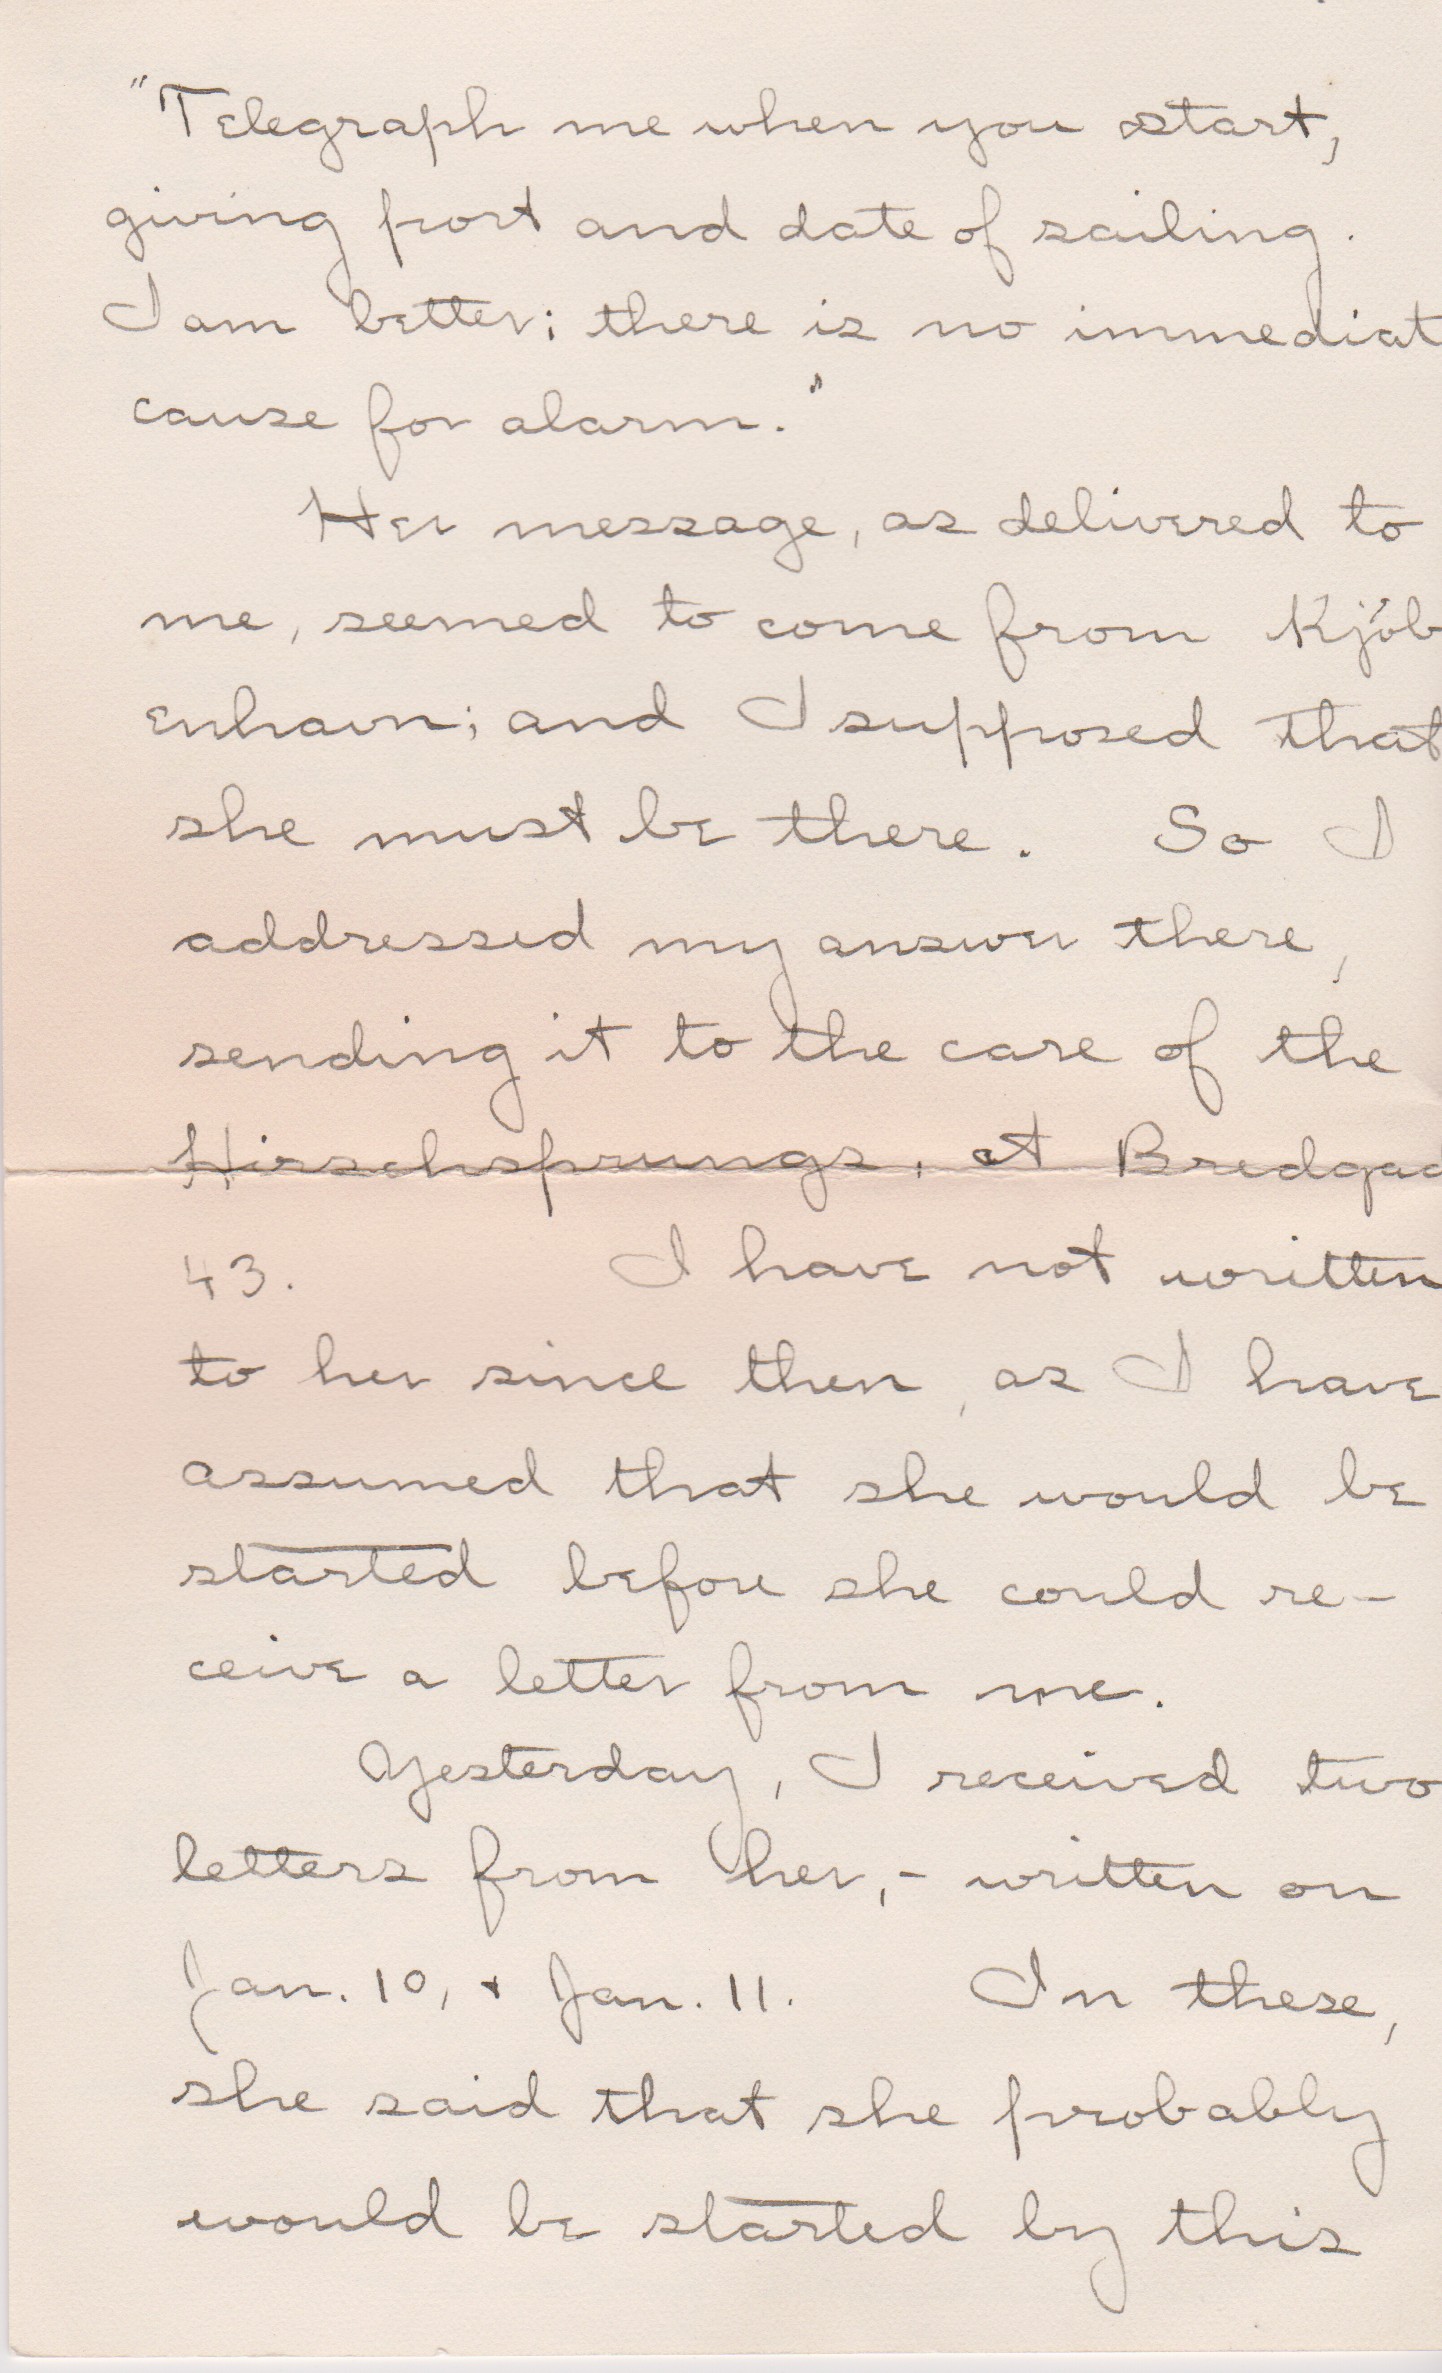 "Telegraph me when you start,
giving port and date of sailing.
I am better; there is no immediat
cause for alarm."
Her message, as delivered to
me, seemed to come from Kjöb
enhavn; and I supposed that
she must be there. So I
addressed my answer there,
sending it to the care of the
Hirschsprungs, at Bredgad
43. I have not written
to her since then, as I have
assumed that she would be
started before she could re-
ceive a letter from me.
Yesterday, I received two
letters from her, - written on
Jan. 10, + Jan. 11. In these,
she said that she probably
would be started by this